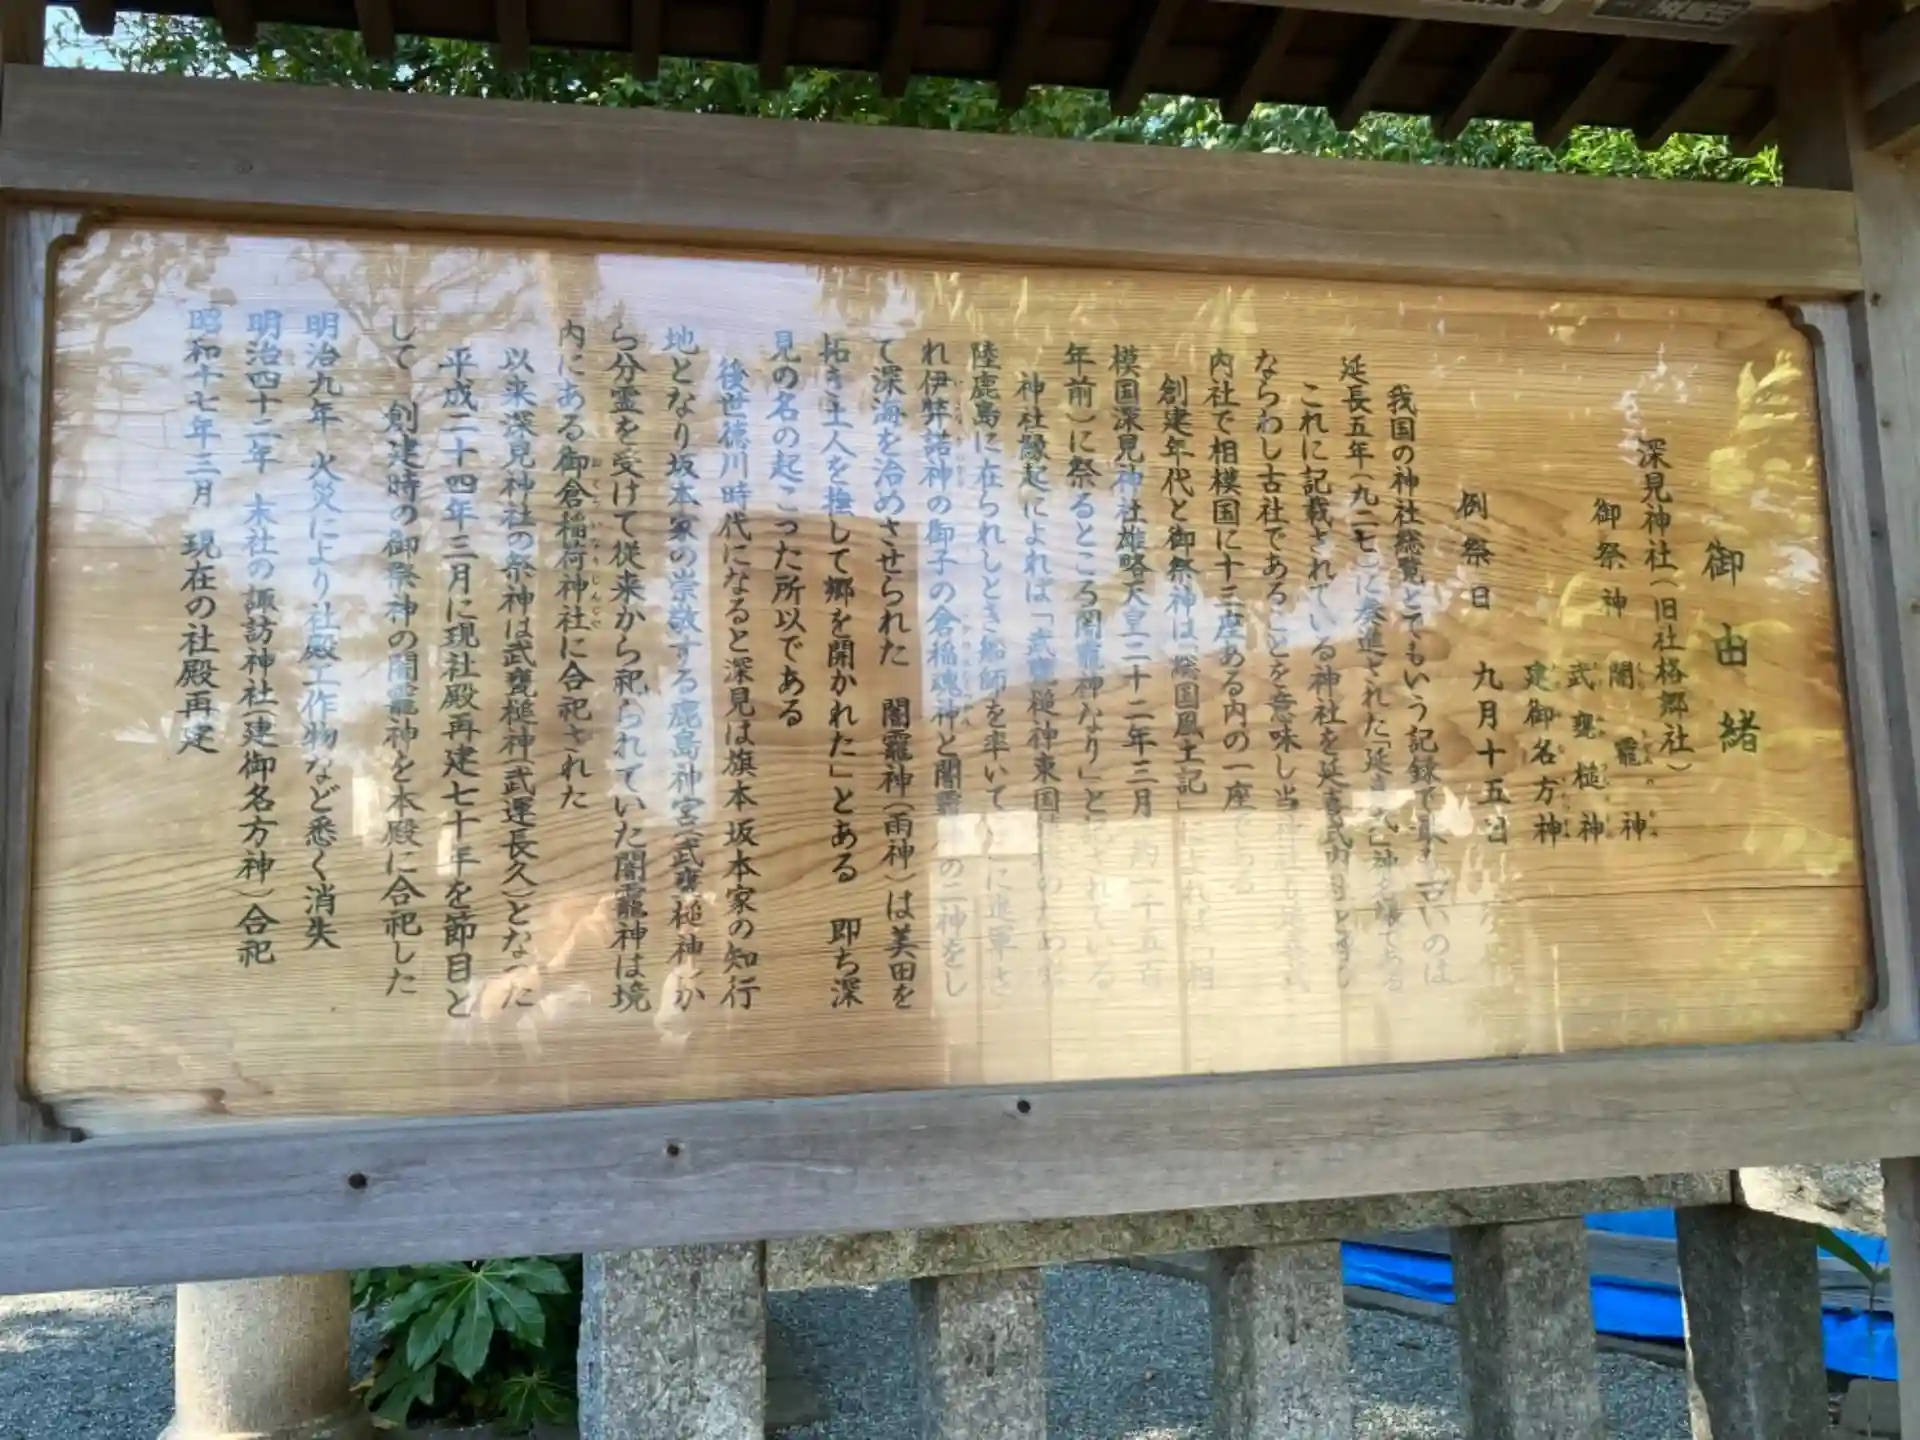 御由緒
深見神社(旧社格郷社)
御祭神
闇龗神
武甕槌神
建御名方神
例祭日 九月十五日
我国の神社総覧とでもいう記録で最も古いのは
延長五年(九二七)に奏進された「延喜式」神名帳である
これに記載されている神社を延喜式内社と呼び
ならわし古社であることを意味し当
内社で相模国に十三座ある内の一座である
創建年代と御祭神は「総国風土記」によれば「相
模国深見神社雄略天皇二十二年三月 約一千五百
年前)に祭るところ闇龗神なり」と記されている
神社縁起によれば「武甕槌神東国
陸鹿島に在られしとき船師を率いて に進軍さ
れ伊弉諾神の御子の倉稲魂神と闇龗神の二神をし
て深海を治めさせられた 闇龗神(雨神)は美田を
拓き土人を撫して郷を開かれた」とある 即ち深
見の名の起こった所以である
後世徳川時代になると深見は旗本坂本家の知行
地となり坂本家の崇敬する鹿島神宮(武甕槌神)か
ら分霊を受けて従来から祀られていた闇龗神は境
内にある御倉稲荷神社に合祀された
以来深見神社の祭神は武甕槌神(武運長久)となった
平成二十四年三月に現社殿再建七十年を節目と
して 創建時の御祭神の闇龗神を本殿に合祀した
明治九年 火災により社殿工作物など悉く消失
明治四十二年 末社の諏訪神社(建御名方神)合祀
昭和十七年三月 現在の社殿再建